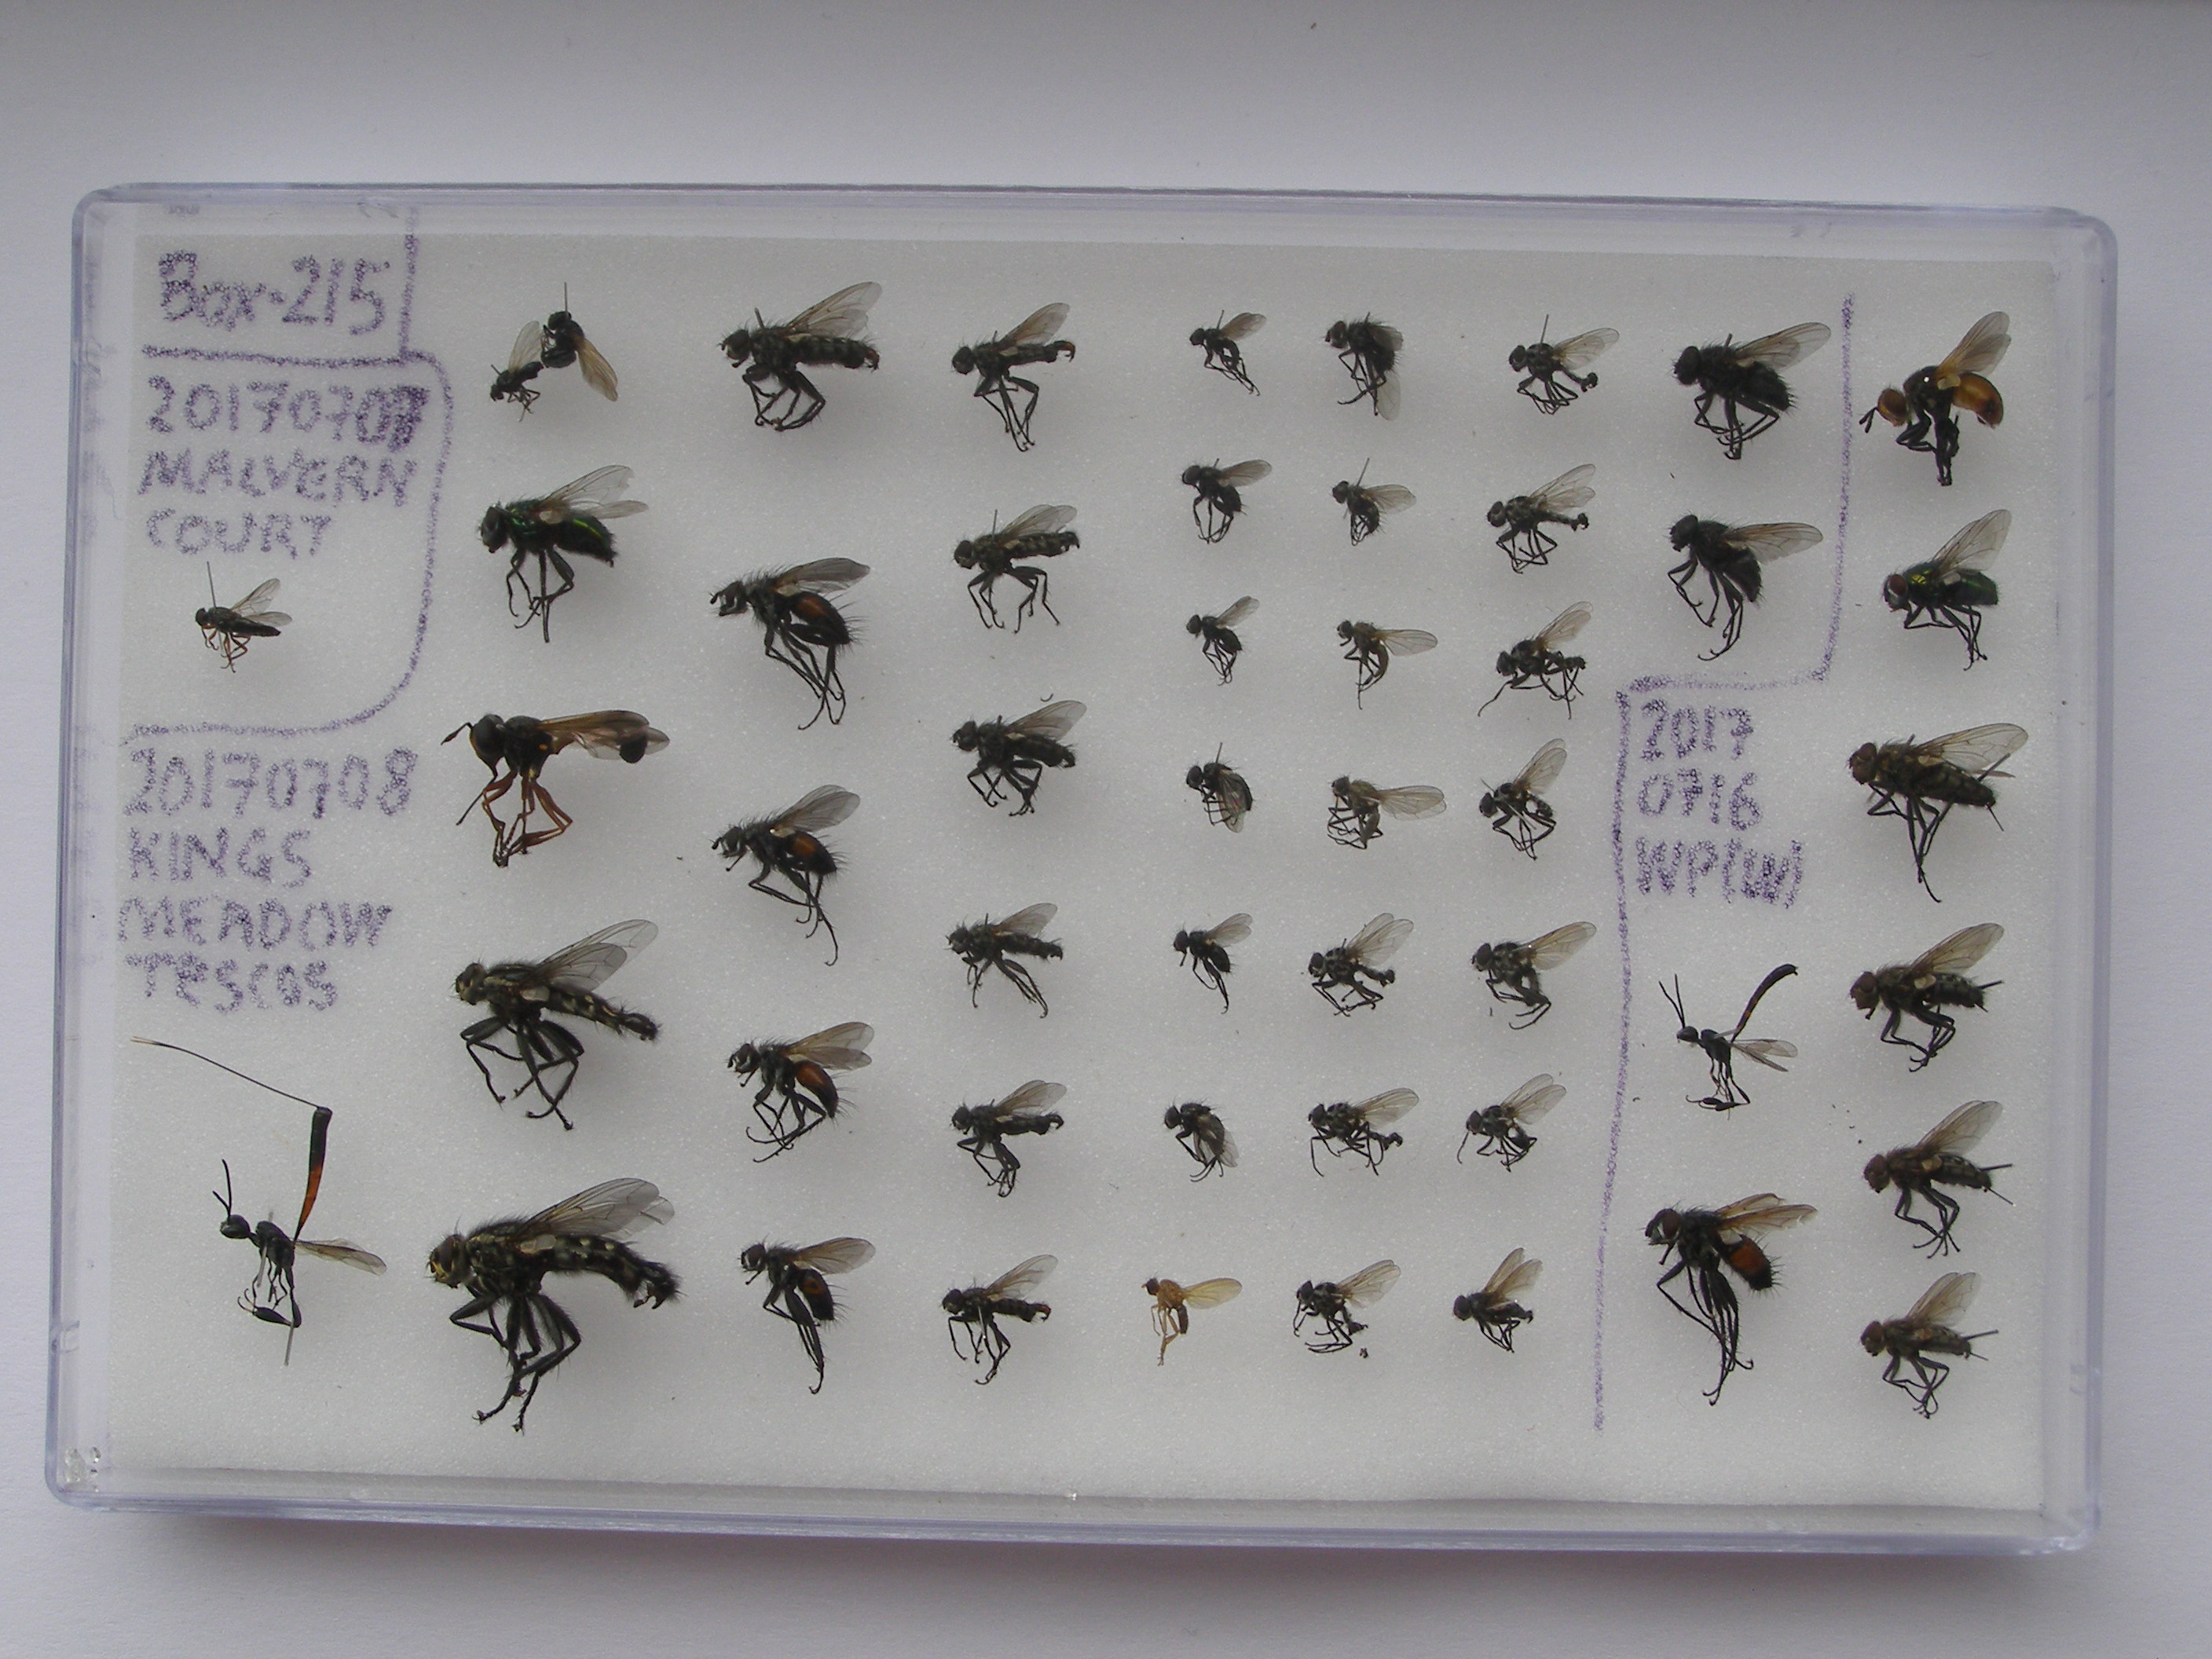 Box-215
20170707
MALVERN
COURT
20170708
KINGS
MEADOW
TESCOS
2017
0716